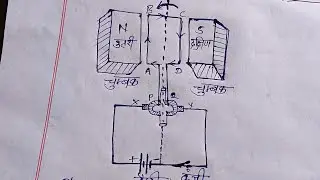 B C
N S
उत्तरी दक्षिण
A D
चुम्बक चुम्बक
P Q
X Y
+ -
कुंजी